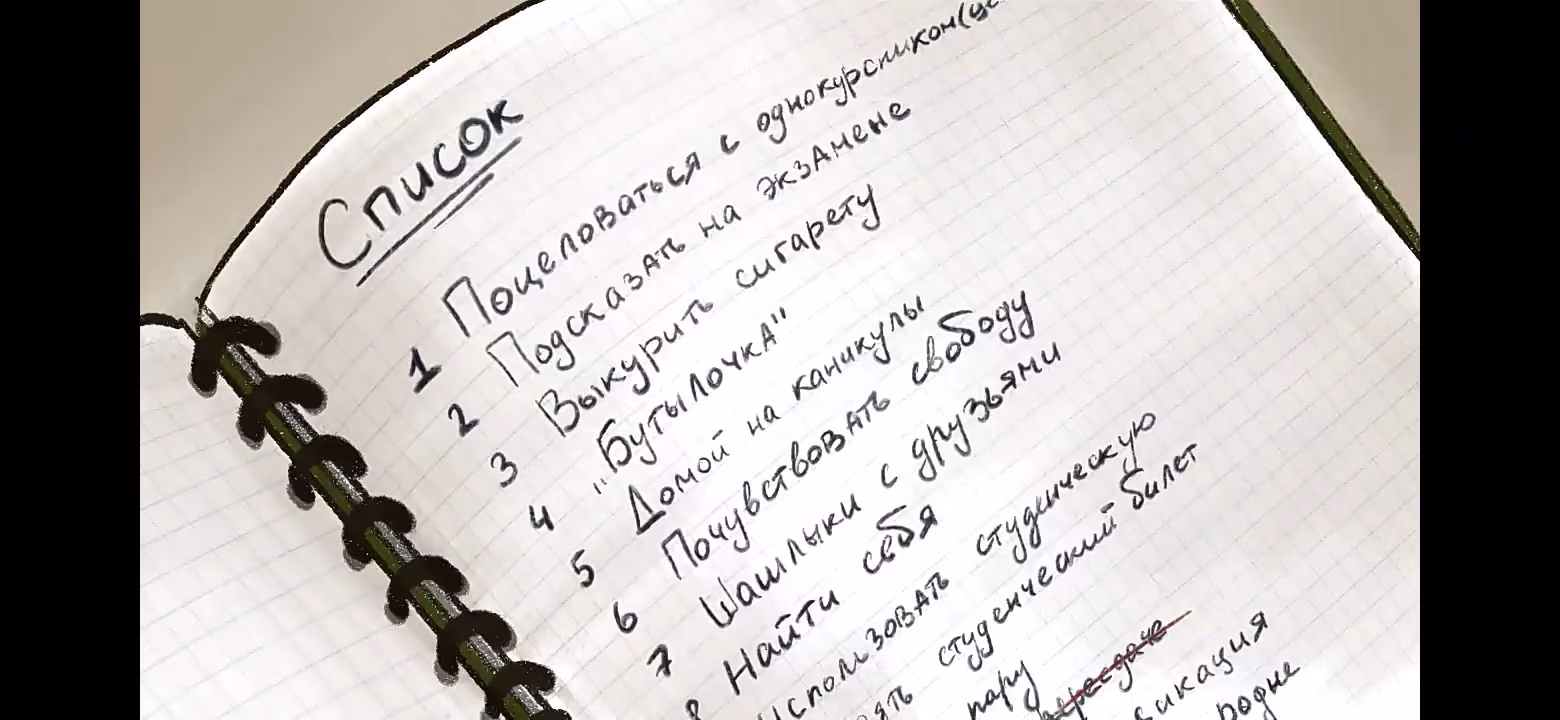 Список
1 Поцеловаться с однокурсником
2 Подсказать на экзамене
3 Выкурить сигарету
4 "Бутылочка"
5 Домой на каникулы
6 Почувствовать свободу
7 Шашлыки с друзьями
8 Найти себя
Использовать студенческую
студенческий билет
пару